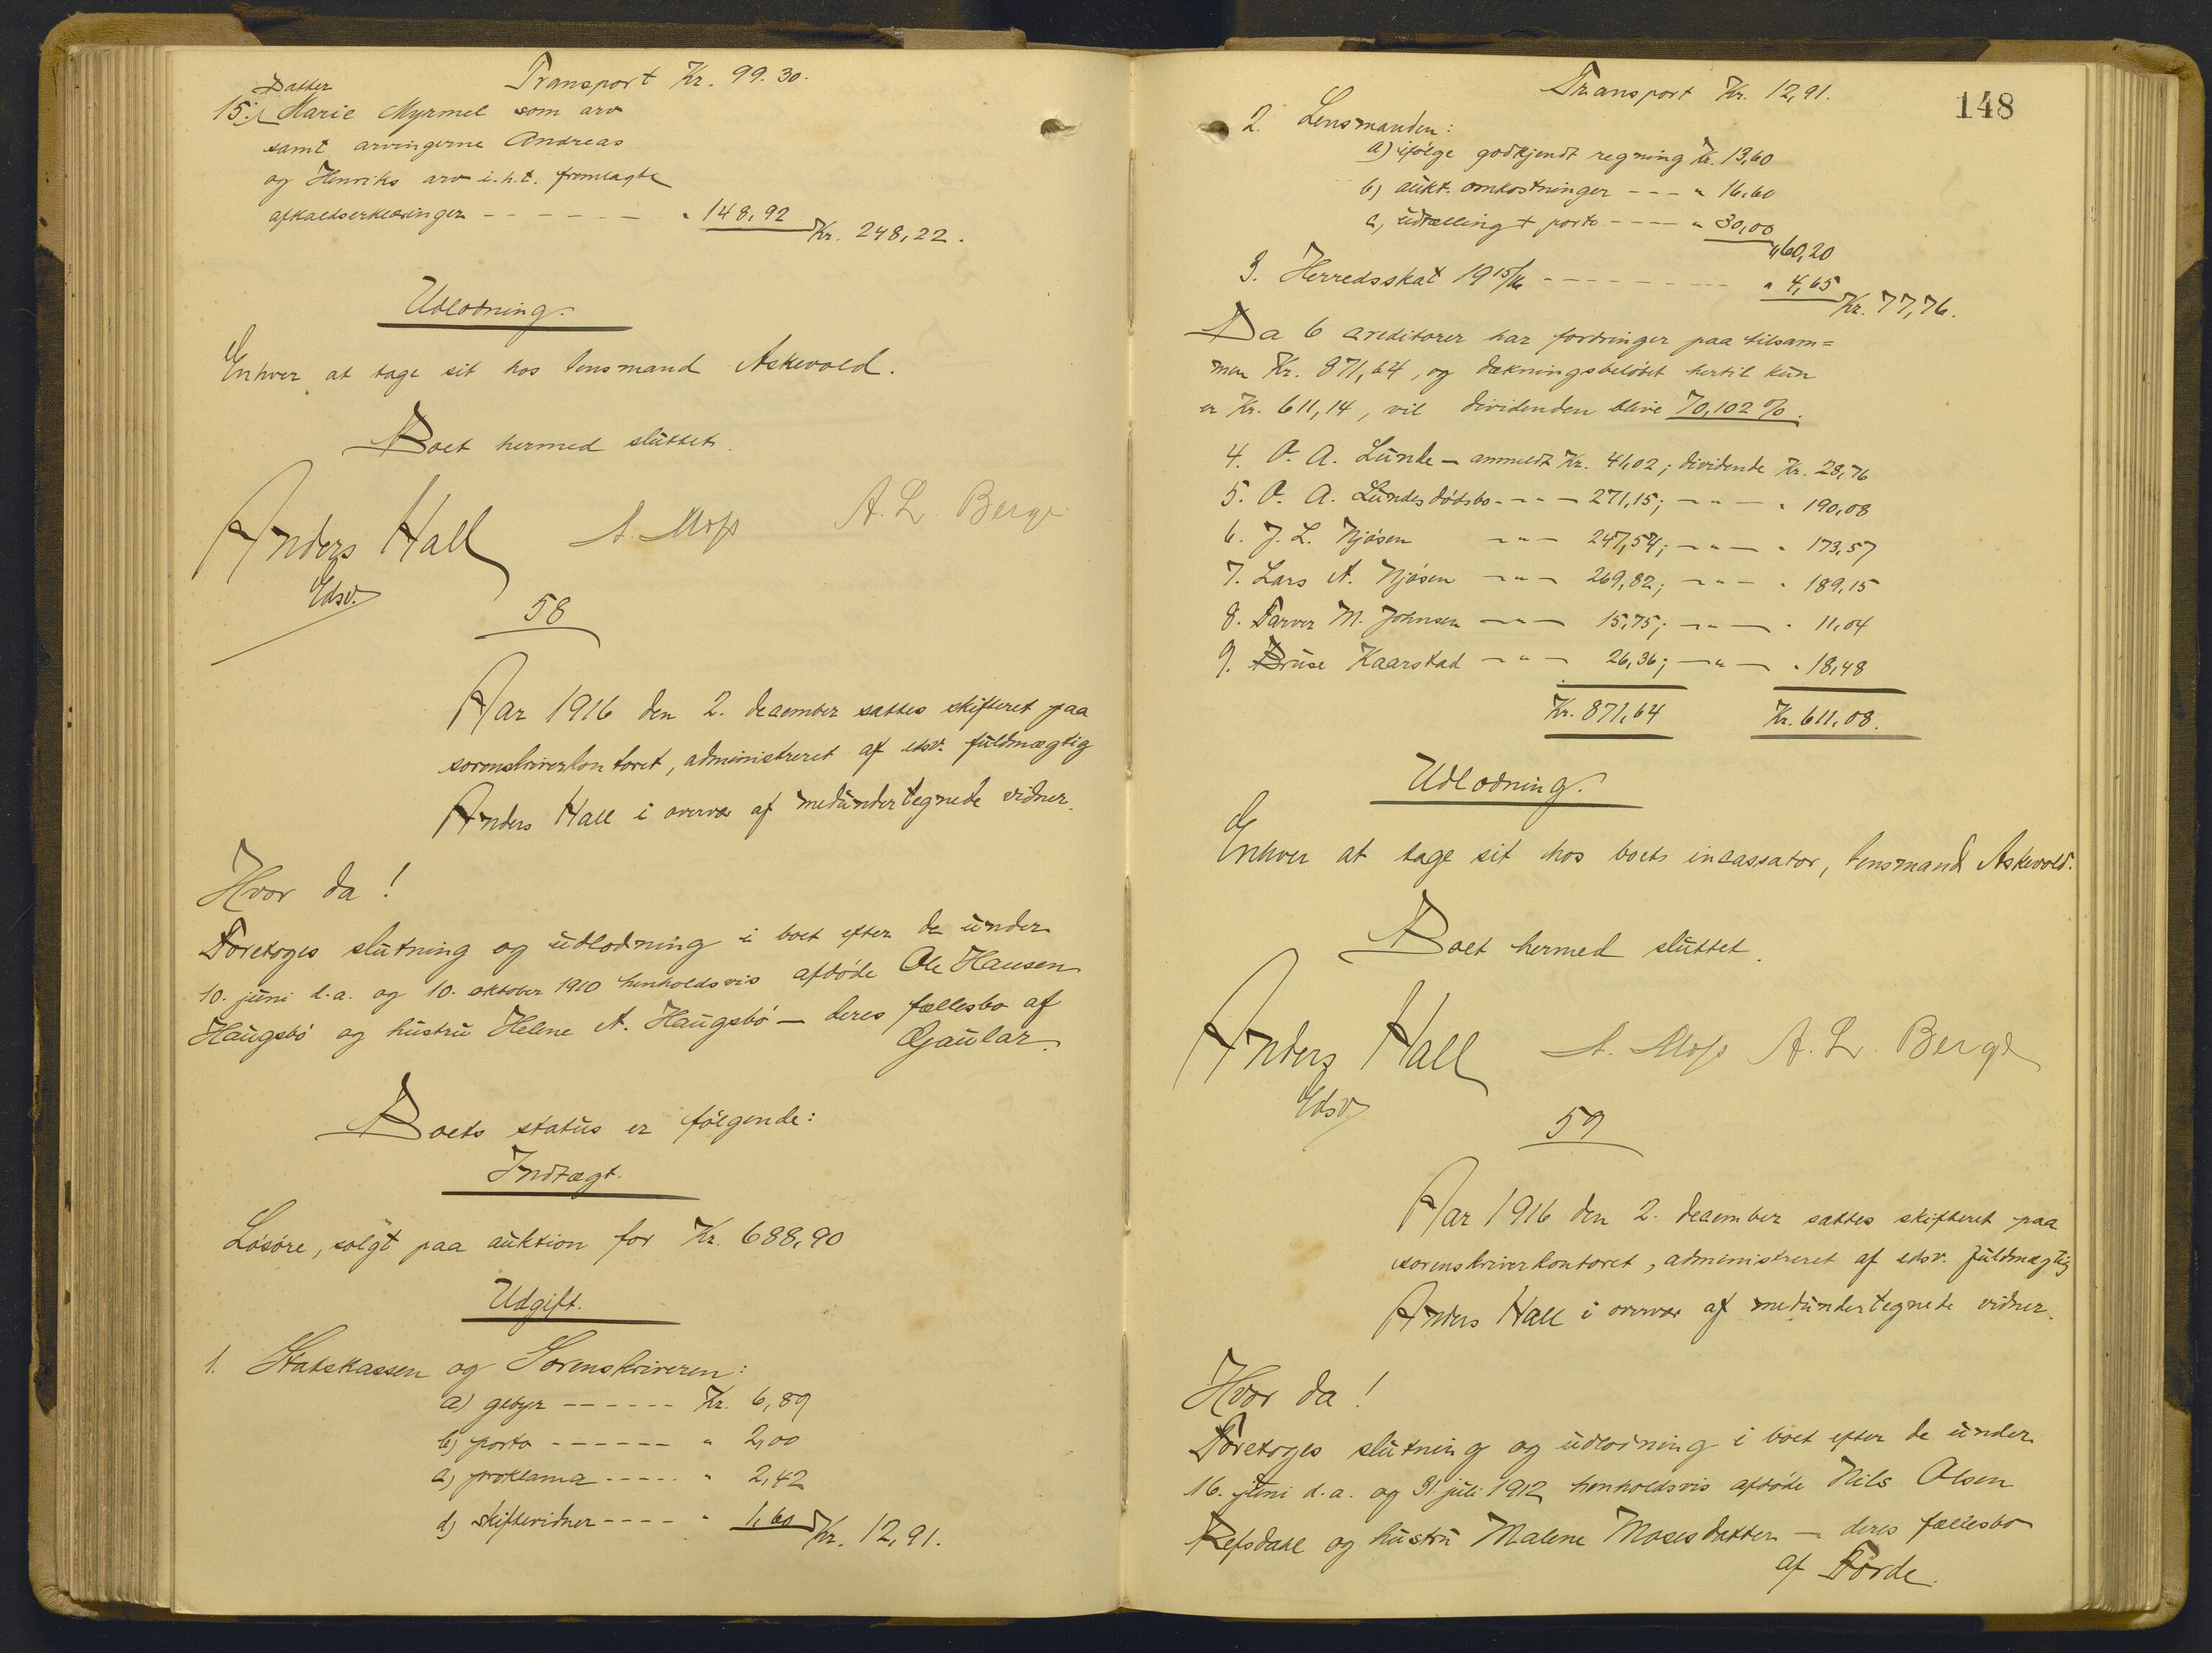 Transport Kr. 99.30.
Datter
15. Marie Myrmel som arv
samt arvingerne Andreas
og Henriks arv i.h.t. fremlagte
afkaldserklæringer - - - - - - „ 148,92
Kr. 248,22.
Udlodning.
Enhver at tage sit hos lensmand Askevold.
Boet hermed sluttet.
Anders Hall A. Moss A. L. Berge
Edsv.
58
Aar 1916 den 2. december sattes skifteret paa
sorenskriverkontoret, administreret af edsv. fuldmægtig
Anders Hall i overvær af medundertegnede vidner.
Hvor da!
Foretoges slutning og udlodning i boet efter de under
10. juni d.a. og 10. oktober 1910 henholdsvis afdøde Ole Hansen
Haugsbø og hustru Helene A. Haugsbø — deres fællesbo af
Gaular.
Boets status er følgende:
Indtægt.
Løsøre, solgt paa auktion for Kr. 688,90
Udgift.
1. Statskassen og Sorenskriveren:
a) gebyr - - - - - - Kr. 6,89
b) porto - - - - - - „ 2,00
c) proklama - - - - - „ 2,42
d) skiftevidner - - - - „ 1,60
Kr. 12,91.
148
Transport Kr. 12,91.
2. Lensmanden:
a) ifølge godkjendt regning Kr. 13,60
b) aukt. omkostninger - - - „ 16,60
c) udtælling + porto - - - - „ 30,00
„ 60,20
3. Herredsskat 1915/16 - - - - - - - - - „ 4,65
Kr. 77,76.
Da 6 creditorer har fordringer paa tilsam=
men Kr. 871,64, og dækningsbeløbet hertil kun
er Kr. 611,14, vil dividenden blive 70,102 %.
4. O. A. Lunde — anmeldt Kr. 41,02; dividende Kr. 28,76
5. O. A. Lundes dødsbo - „ - 271,15; - „ - „ 190,08
6. J. L. Njøsen - „ - 247,54; - „ - „ 173,57
7. Lars A. Njøsen - „ - 269,82; - „ - „ 189,15
8. Farver M. Johnsen - „ - 15,75; - „ - „ 11,04
9. Druse Kaarstad - „ - 26,36; - „ - „ 18,48
Kr. 871,64 Kr. 611,08.
Udlodning.
Enhver at tage sit hos boets incassator, lensmand Askevold.
Boet hermed sluttet.
Anders Hall A. Moss A. L. Berge
Edsv.
59
Aar 1916 den 2. december sattes skifteret paa
sorenskriverkontoret, administreret af edsv. fuldmægtig
Anders Hall i overvær af medundertegnede vidner.
Hvor da!
Foretoges slutning og udlodning i boet efter de under
16. juni d.a. og 31. juli 1912 henholdsvis afdøde Nils Olsen
Refsdale og hustru Malene Mosesdatter — deres fællesbo
af Førde.